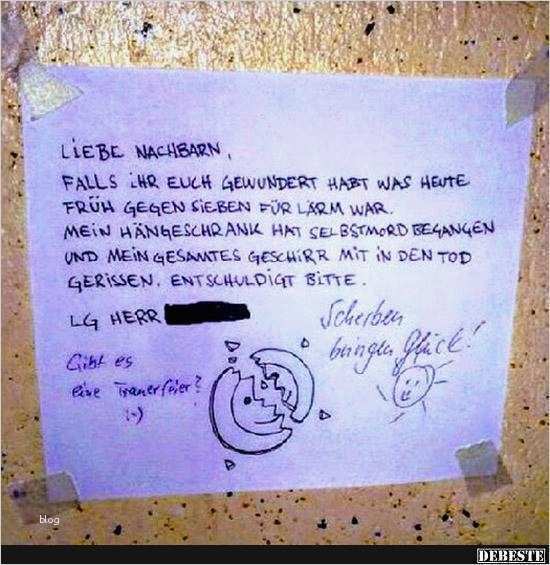 LIEBE NACHBARN,
FALLS IHR EUCH GEWUNDERT HABT WAS HEUTE
FRÜH GEGEN SIEBEN FÜR LÄRM WAR.
MEIN HÄNGESCHRANK HAT SELBSTMORD BEGANGEN
UND MEIN GESAMTES GESCHIRR MIT IN DEN TOD
GERISSEN. ENTSCHULDIGT BITTE.
LG HERR
Scherben
bringen Glück!
Gibt es
eine Trauerfeier?
:-)
blog
DEBESTE